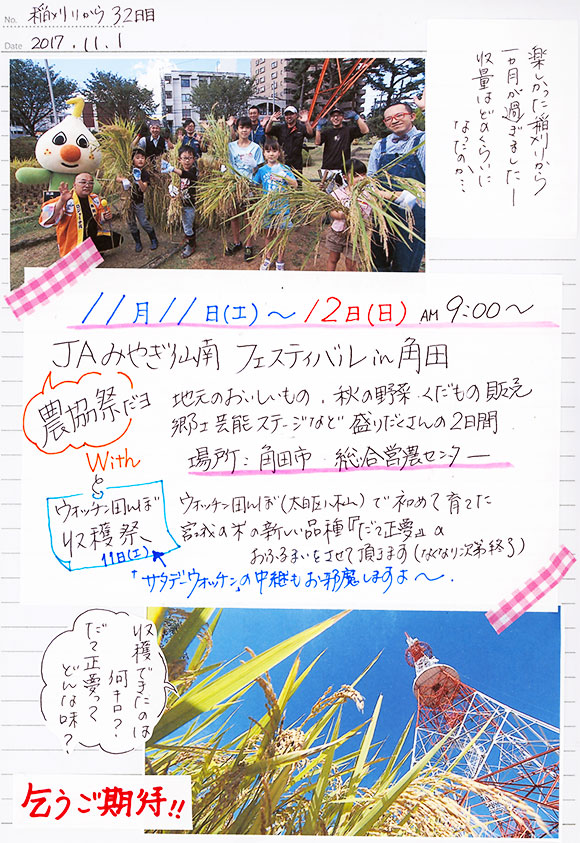 No. 稲刈りから32日目
Date 2017.11.1
楽しかった稲刈りから
一ヵ月が過ぎました—
収量はどのくらいに
なったのか…
11月11日(土)〜12日(日) AM 9:00〜
JAみやぎ仙南 フェスティバル in 角田
農協祭だヨ
地元のおいしいもの、秋の野菜・くだもの販売
郷土芸能ステージなど 盛りだくさんの2日間
場所: 角田市 総合営農センター
With
ウォッチン田んぼ
収穫祭、
11日(土)
ウォッチン田んぼ(大年寺山)で初めて育てた
宮城の米の新しい品種『だて正夢』の
おふるまいをさせて頂きます(なくなり次第終了)
「サタデーウォッチン」の中継もお邪魔しますよ〜.
収穫できたのは
何キロ?
だて正夢って
どんな味?
乞うご期待!!